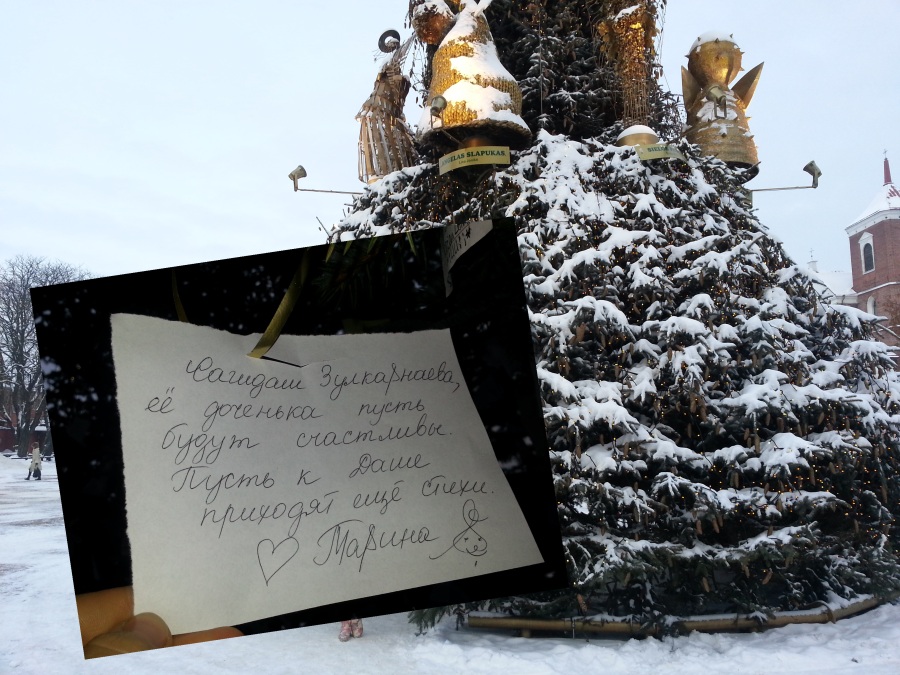 SLAPUKAS
Сагидаш Зулкарнаева,
её доченька пусть
будут счастливы.
Пусть к Даше
приходят ещё стихи.
Марина